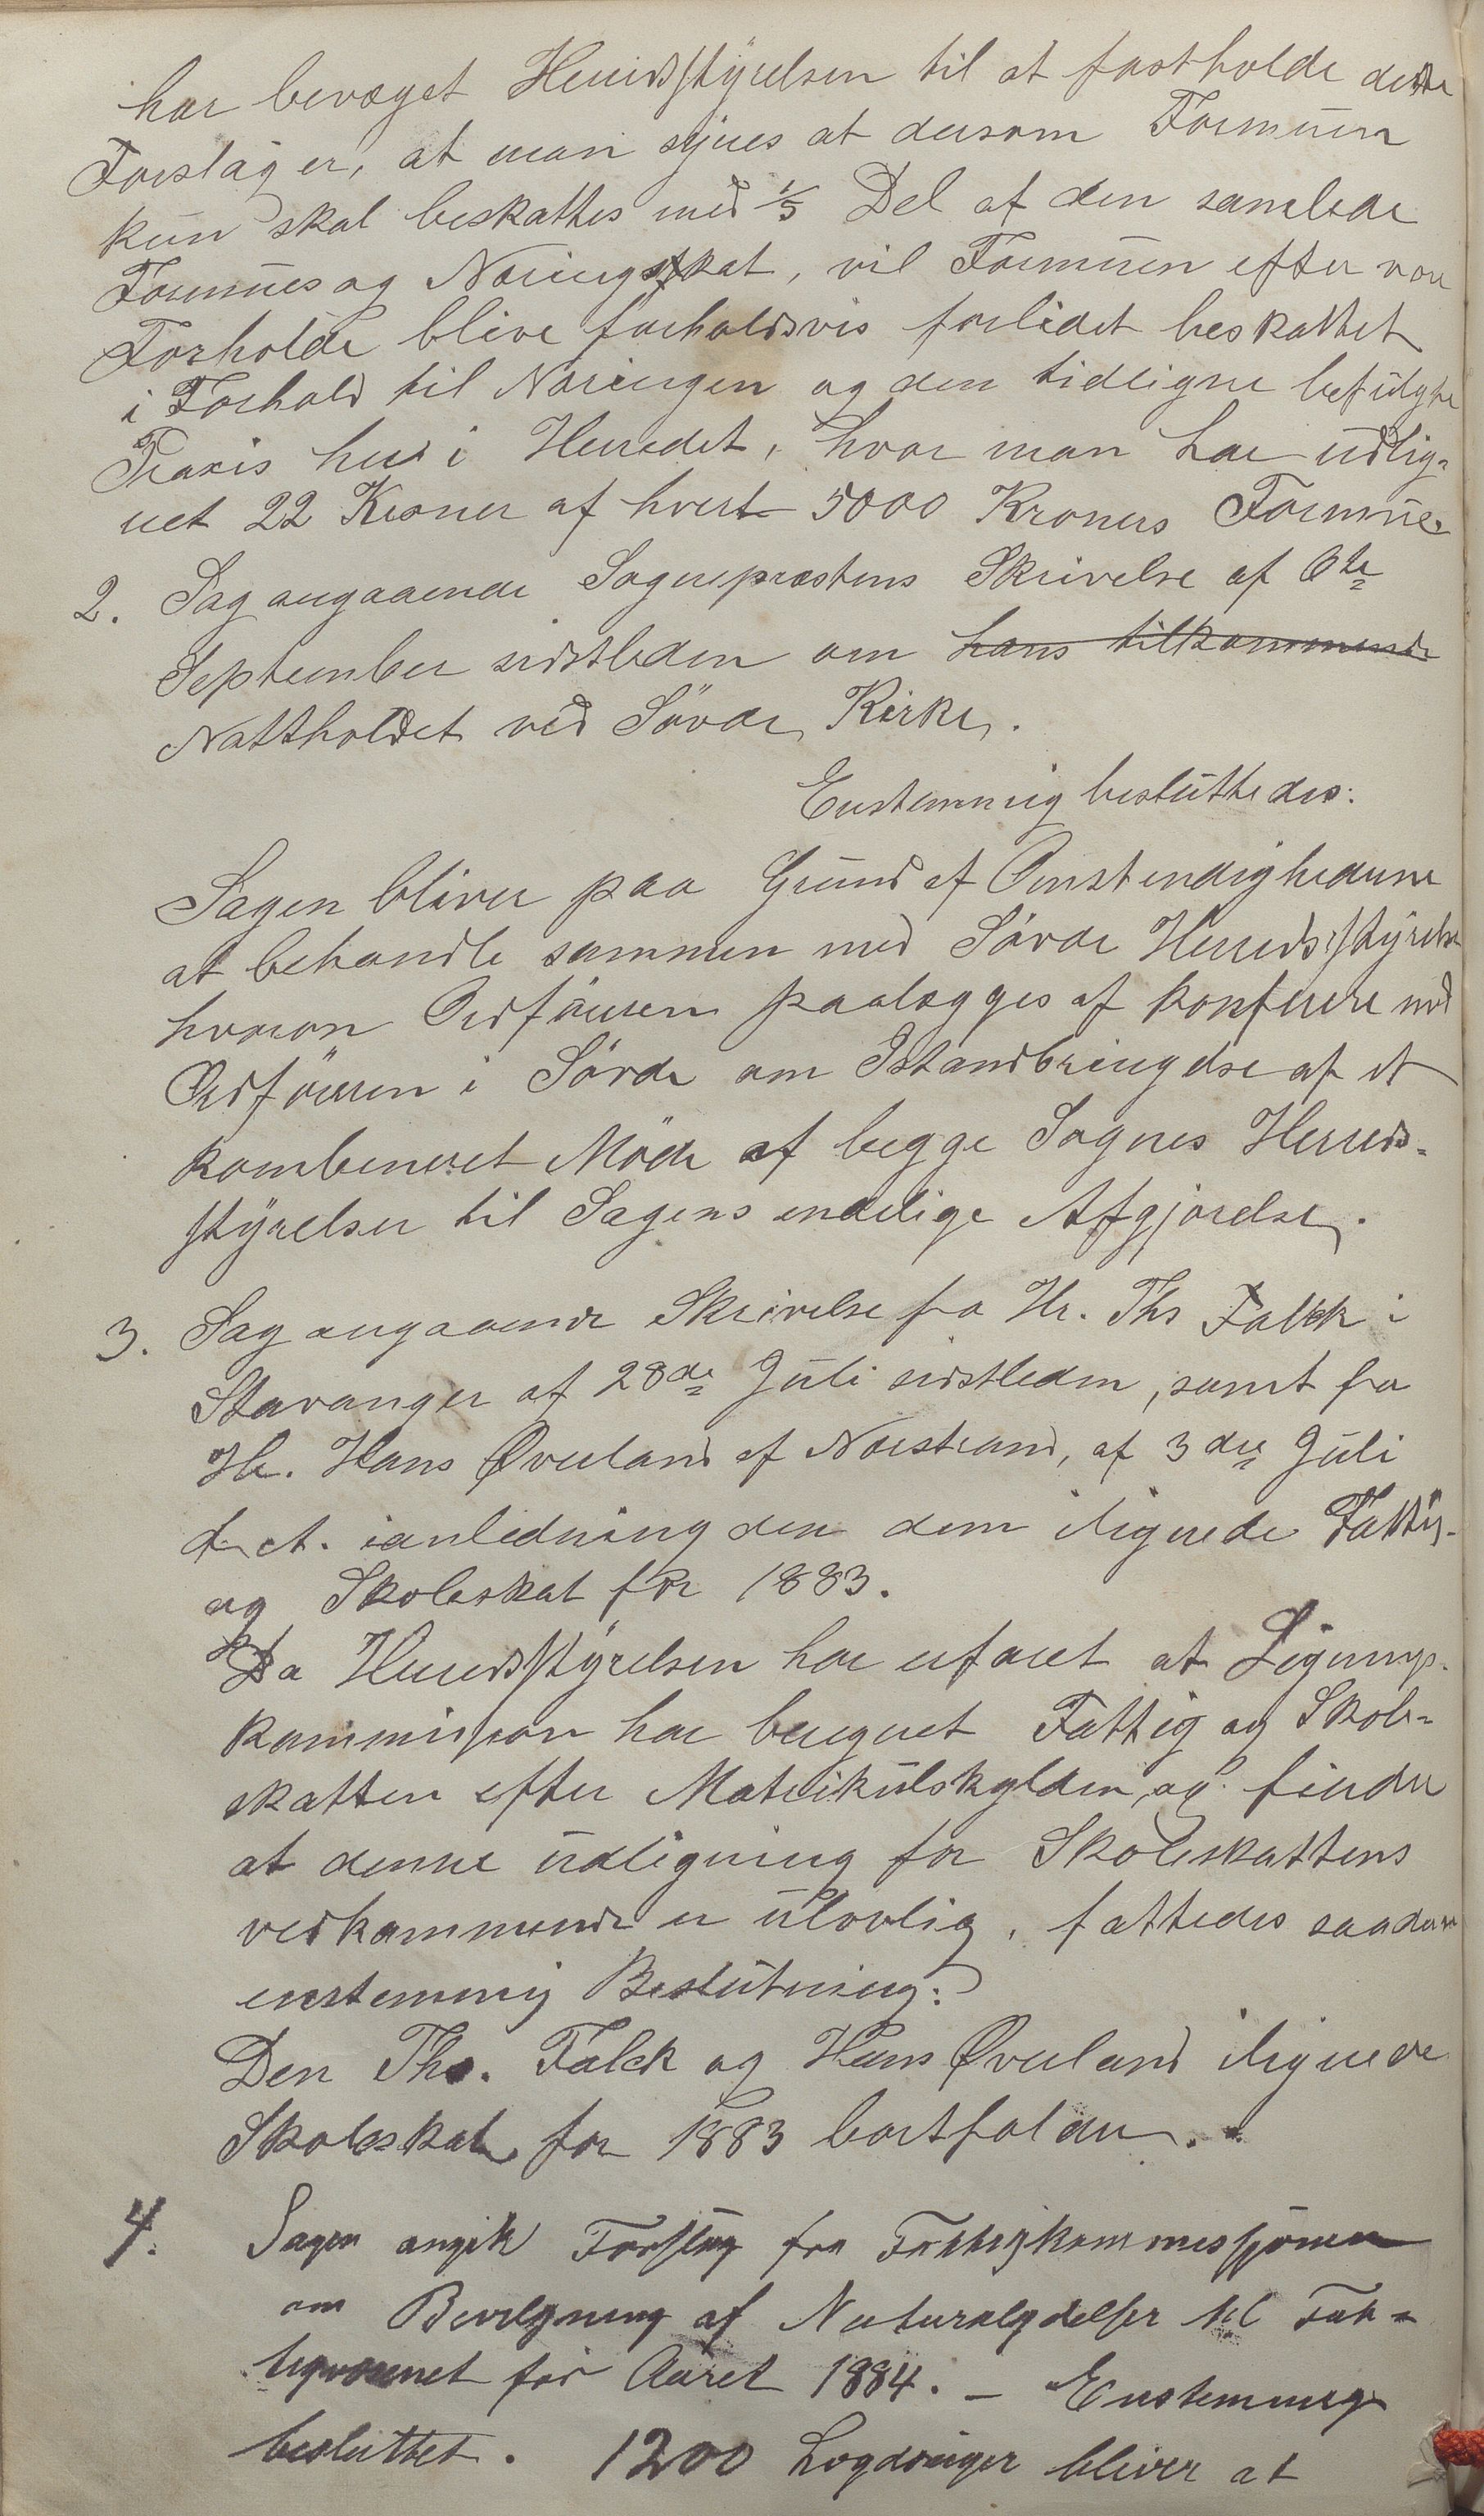 har bevæget Herredsstyrelsen til at fastholde dette
Forslag er, at man synes at dersom Formuen
kun skal beskattes med 1/5 Del af den samlede
Formues og Næringsskat, vil Formuen efter vore
Forholde blive forholdsvis forlidet beskattet
i Forhold til Næringen og den tidligere befulgte
Praxis her i Herredet, hvor man har udlig=
net 22 Kroner af hvert 5000 Kroners Formue.
2. Sag angaaende Sognepræstens Skrivelse af 6te
September sidstleden om hans tilkommende
Nattholdet ved Søvde Kirke.
Enstemmig besluttedes:
Sagen bliver paa Grund af Omstendighederne
at behandle sammen med Søvde Herredsstyrelse
hvorom Ordføreren paalægges at konferere med
Ordføreren i Søvde om Istandbringelse af et
kombeneret Møde af begge Sognes Herreds=
styrelser til Sagens endelige Afgjørelse.
3. Sag angaaende Skrivelse fra Hr. Ths Falck i
Stavanger af 28de Juli sidstleden, samt fra
Hr. Hans Øverland af Nærstrand, af 3die Juli
d. A. ianledning den dem ilignede Fattig-
og Skoleskat for 1883.
Da Herredsstyrelsen har erfaret at Lignings-
kommissjon har beregnet Fattig og Skole=
skatten efter Matrikulskylden, og finder
at denne udligning for Skoleskattens
vedkommende er ulovlig, fattedes saadan
enstemmig Beslutning:
Den Ths. Falck og Hans Øverland ilignede
Skoleskat for 1883 bortfalder.
4. Sagen angik Forslag fra Fattigkommissjonen
om Bevilgning af Naturalydelser til Fat=
tigvæsenet for Aaret 1884. – Enstemmig
besluttet. 1200 Lægdsuger bliver at